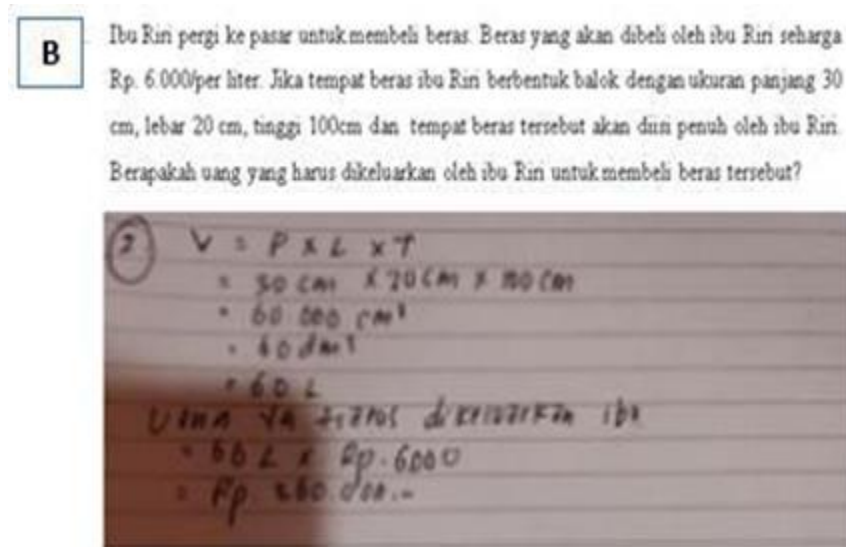 B
Ibu Riri pergi ke pasar untuk membeli beras. Beras yang akan dibeli oleh ibu Riri seharga
Rp. 6.000/per liter. Jika tempat beras ibu Riri berbentuk balok dengan ukuran panjang 30
cm, lebar 20 cm, tinggi 100cm dan tempat beras tersebut akan diisi penuh oleh ibu Riri.
Berapakah uang yang harus dikeluarkan oleh ibu Riri untuk membeli beras tersebut?
V = P x L x T
= 30 cm x 20 cm x 100 cm
= 60 000 cm³
= 60 dm³
= 60 L
dikeluarkan ibu
= 60 L x Rp. 6000
= Rp.